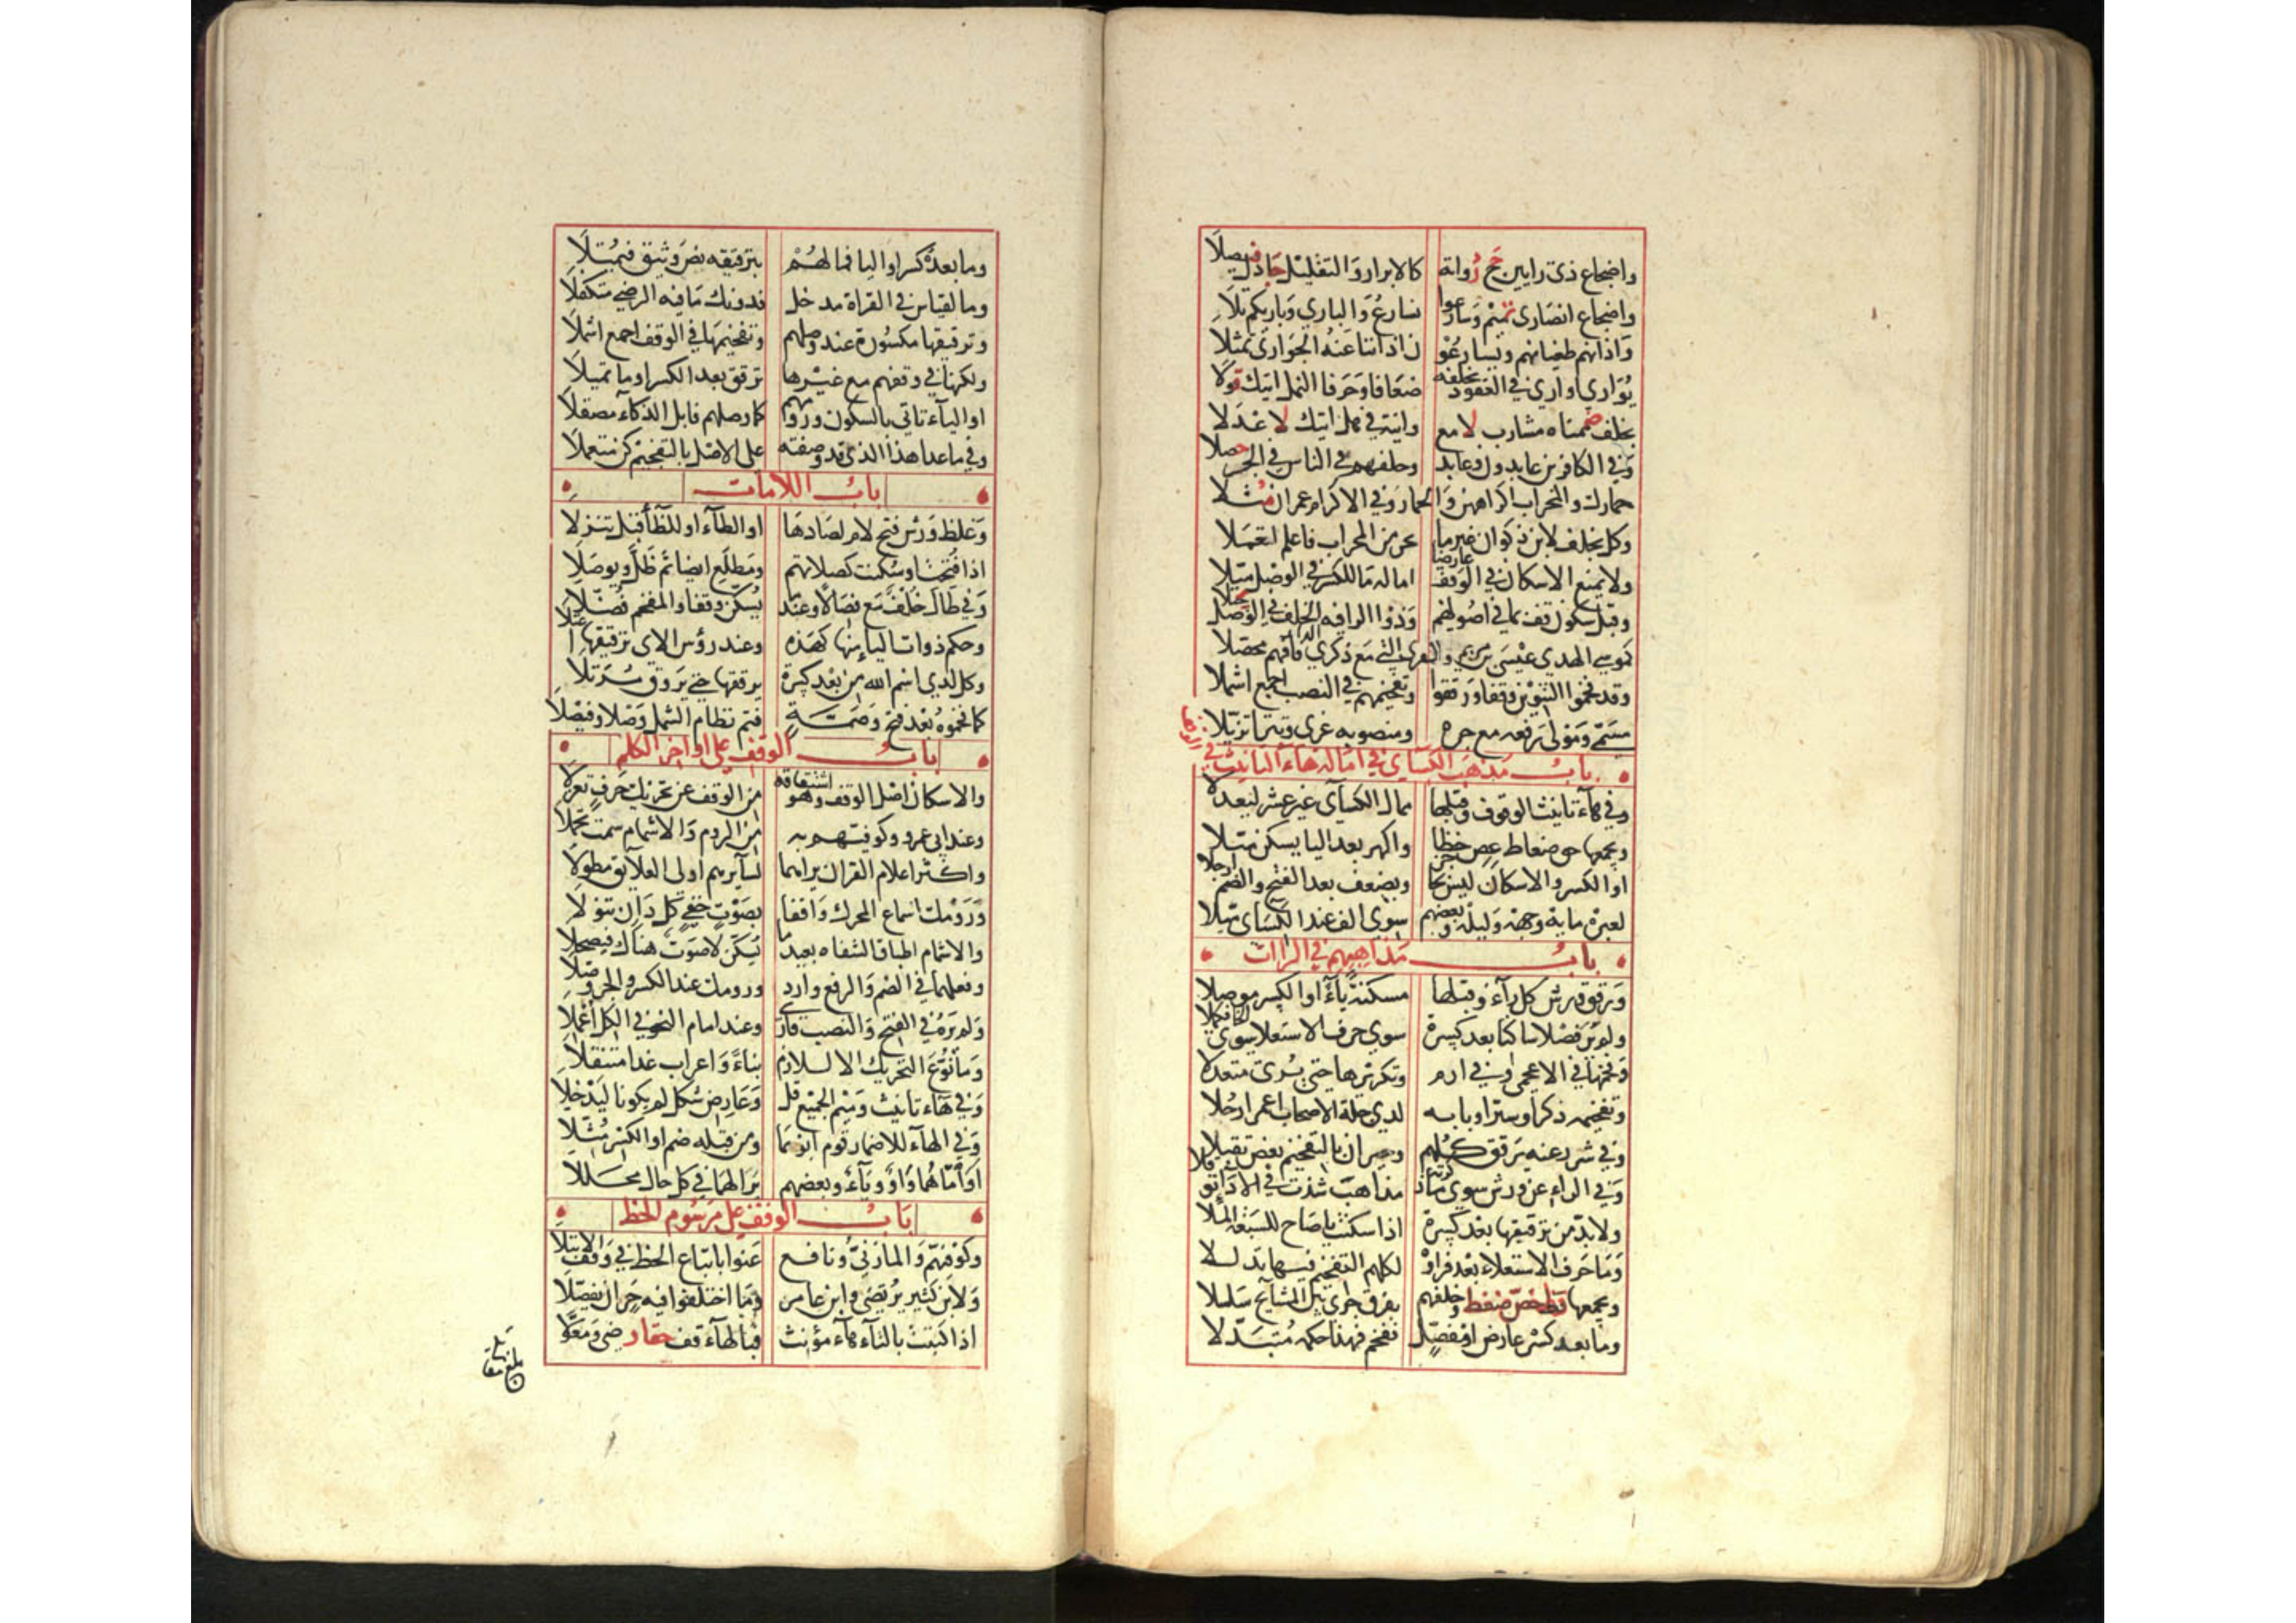 واضجاع ذي رايين حج رواة كالابرار والتقليل جادل فيصلا
واضجاع انصاري تميم وسارعوا نسارع والباري وباريكم تلا
واذانهم طغيانهم ويسارعو ن اذاننا عنه الجواري تمثلا
يواري اواري في العقود بخلفه ضعافا وحرفا النمل اتيك قولا
بخلف ضممناه مشارب لامع وانية في هل اتيك لاعدلا
وفي الكافرين عابدون وعابد وخلفهم في الناس في الجر حصلا
حمارك والمحراب اكراههن والحمار وفي الاكرام عمران مثلا
وكل بخلف لابن ذكوان غير ما يجر من المحراب فاعلم لتعملا
ولا يمنع الاسكان في الوقف عارضا امالة ما للكسر في الوصل ميلا
وقبل سكون قف بما في اصولهم وذو الرا فيه الخلف في الوصل يجتلا
كموسي الهدي عيسي بن مريم والقري التي مع ذكري الدار فافهم محصلا
وقد فخموا التنوين وقفا ورققوا وتفخيمهم في النصب اجمع اشملا
مسمي ومولي رفعه مع جره ومنصوبه غزي وتترا تزيلا
باب مذهب الكسائي في امالة هاء التانيث في الوقف
وفي هاء تانيث الوقوف وقبلها ممال الكسائي غير عشر ليعدلا
ويجمعها حق ضغاط عص خظا واكهر بعد اليا يسكن ميلا
او الكسر والاسكان ليس بحاجز ويضعف بعد الفتح والضم ارجلا
لعبرة مايه وجهه وليكه وبعضهم سوي الف عند الكسائي ميلا
باب مذاهبهم في الراات
ورقق ورش كل راء وقبلها مسكنة ياء او الكسر موصلا
ولم ير فصلا ساكنا بعد كسرة سوي حرف الاستعلا سوي الخا فكملا
وفخمها في الاعجمي وفي ارم وتكريرها حتي يري متعدلا
وتفخيمه ذكرا وسترا وبابه لدي جلة الاصحاب اعمر ارحلا
وفي شرر عنه يرقق كلهم وحيران بالتفخيم بعض تقبلا
وفي الراء عن ورش سوي ما ذكرته مذاهب شذت في الاداء توقلا
ولا بد من ترقيقها بعد كسرة اذا سكنت يا صاح للسبعة الملا
وما حرف الاستعلاء بعد فراؤ لكلهم التفخيم فيها تذللا
ويجمعها قظ خص ضغط وخلفهم بفرق جري بين المشايخ سلسلا
وما بعد كسر عارض او مفصل ففخم فهذا حكمه متبدلا
وما بعده كسر او اليا فما لهم بترقيقه نص وثيق فيمثلا
وما لقياس في القراة مدخل فدونك ما فيه الرضي متكفلا
وترقيقها مكسورة عند وصلهم وتفخيمها في الوقف اجمع اشملا
ولكنها في وقفهم مع غيرها ترقق بعد الكسر او ما تميلا
او الياء تاتي بالسكون ورومهم كما وصلهم فابل الذكاء مصقلا
وفي ما عدا هذا الذي قد وصفته علي الاصل بالتفخيم كن متعملا
باب اللامات
وغلظ ورش فتح لام لصادها او الطاء او للظا قبل تنزلا
اذا فتحت او سكنت كصلاتهم ومطلع ايضا ثم ظل ويوصلا
وفي طال خلف مع فصالا وعند ما يسكن وقفا والمفخم فضلا
وحكم ذوات اليا منها كهذه وعند رؤس الاي ترقيقها اعتلا
وكل لدي اسم الله من بعد كسرة يرققها حتي يروق مرتلا
كما فخموه بعد فتح وضمة فتم نظام الشمل وصلا وفيصلا
باب الوقف علي اواخر الكلم
والاسكان اصل الوقف وهو اشتقاقه من الوقف عن تحريك حرف تعزلا
وعند ابي عمرو وكوفيهم به من الروم والاشمام سمت تجملا
واكثر اعلام القران يراهما لسايرهم اولي العلائق مطولا
ورومك اسماع المحرك واقفا بصوت خفي كل دان تنولا
والاشمام اطباق الشفاه بعيد ما يسكن لا صوت هناك فيصحلا
وفعلهما في الضم والرفع وارد ورومك عند الكسر والجر وصلا
ولم يره في الفتح والنصب قارئ وعند امام النحو في الكل اعملا
وما نوع التحريك الا للازم بناء واعراب غدا متنقلا
وفي هاء تانيث وميم الجميع قل وعارض شكل لم يكونا ليدخلا
وفي الهاء للاضمار قوم ابوهما ومن قبله ضم او الكسر مثلا
او اماهما واو وياء وبعضهم يرا لهما في كل حال محللا
باب الوقف علي مرسوم الخط
وكوفيهم والمازني ونافع عنوا باتباع الخط في وقف الابتلا
ولابن كثير يرتضي وابن عامر وما اختلفوا فيه حر ان يفصلا
اذا كتبت بالتاء هاء مؤنث فبالهاء قف حقا رضي ومعولا
بلغ مقابلة